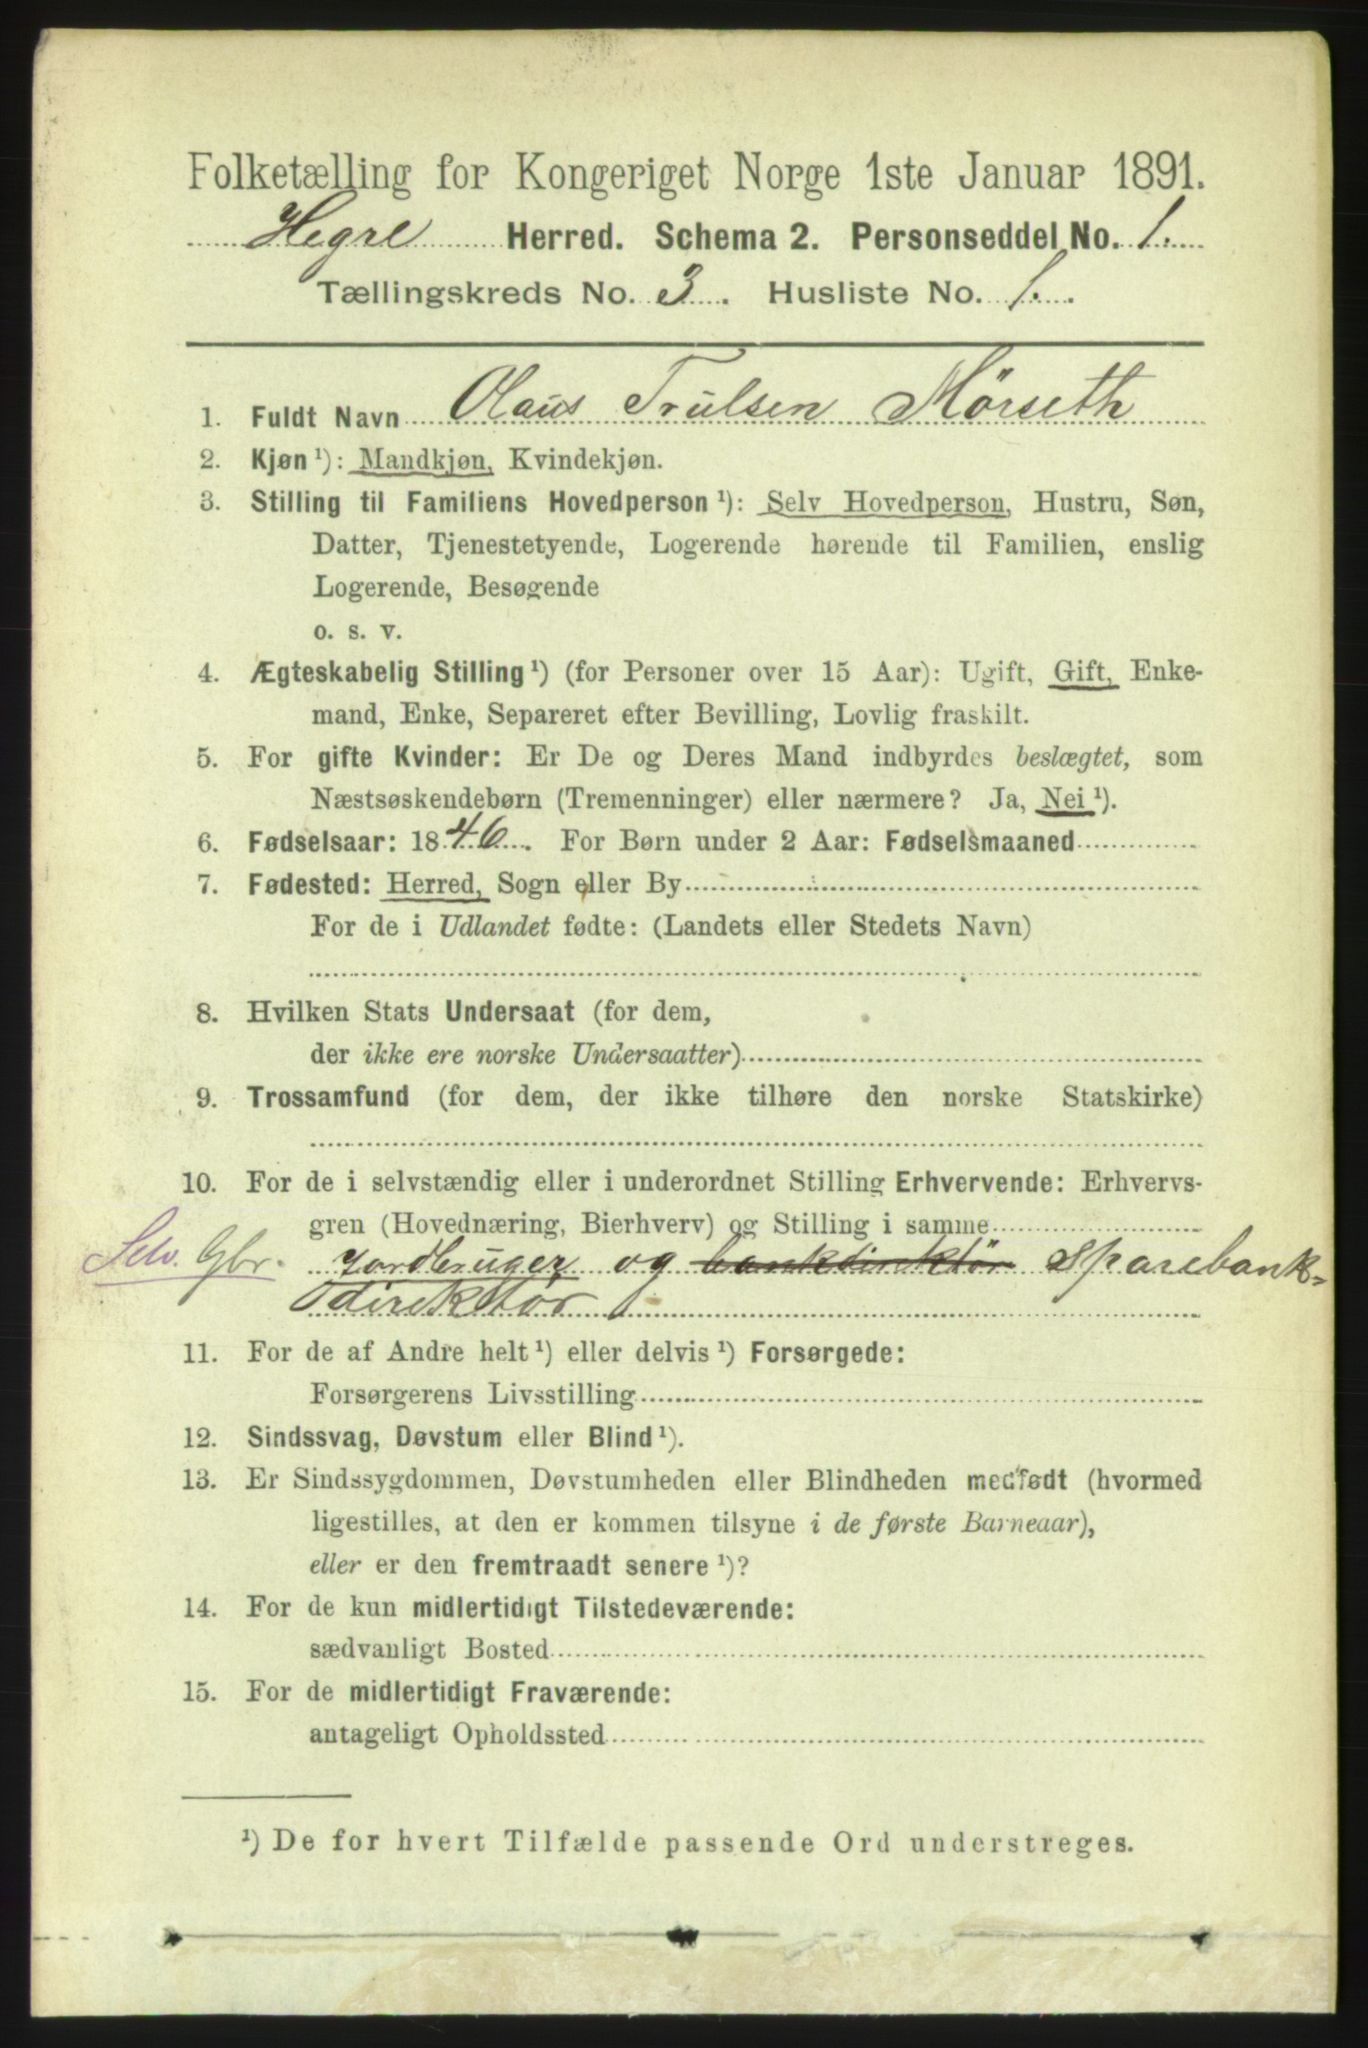 Folketælling for Kongeriget Norge 1ste Januar 1891.
Hegre Herred. Schema 2. Personseddel No. 1.
Tællingskreds No. 3. Husliste No. 1.
1. Fuldt Navn Olaus Trulsen Mørseth
2. Kjøn ¹): Mandkjøn, Kvindekjøn.
3. Stilling til Familiens Hovedperson ¹): Selv Hovedperson, Hustru, Søn,
Datter, Tjenestetyende, Logerende hørende til Familien, enslig
Logerende, Besøgende
o. s. v.
4. Ægteskabelig Stilling ¹) (for Personer over 15 Aar): Ugift, Gift, Enke-
mand, Enke, Separeret efter Bevilling, Lovlig fraskilt.
5. For gifte Kvinder: Er De og Deres Mand indbyrdes beslægtet, som
Næstsøskendebørn (Tremenninger) eller nærmere? Ja, Nei ¹).
6. Fødselsaar: 1846. For Børn under 2 Aar: Fødselsmaaned
7. Fødested: Herred, Sogn eller By
For de i Udlandet fødte: (Landets eller Stedets Navn)
8. Hvilken Stats Undersaat (for dem,
der ikke ere norske Undersaatter)
9. Trossamfund (for dem, der ikke tilhøre den norske Statskirke)
10. For de i selvstændig eller i underordnet Stilling Erhvervende: Erhvervs-
gren (Hovednæring, Bierhverv) og Stilling i samme
Selv. Gbr. Jordbruger og bankdirektør Sparebank-
direktør
11. For de af Andre helt ¹) eller delvis ¹) Forsørgede:
Forsørgerens Livsstilling
12. Sindssvag, Døvstum eller Blind ¹).
13. Er Sindssygdommen, Døvstumheden eller Blindheden medfødt (hvormed
ligestilles, at den er kommen tilsyne i de første Barneaar),
eller er den fremtraadt senere ¹)?
14. For de kun midlertidigt Tilstedeværende:
sædvanligt Bosted
15. For de midlertidigt Fraværende:
antageligt Opholdssted
¹) De for hvert Tilfælde passende Ord understreges.